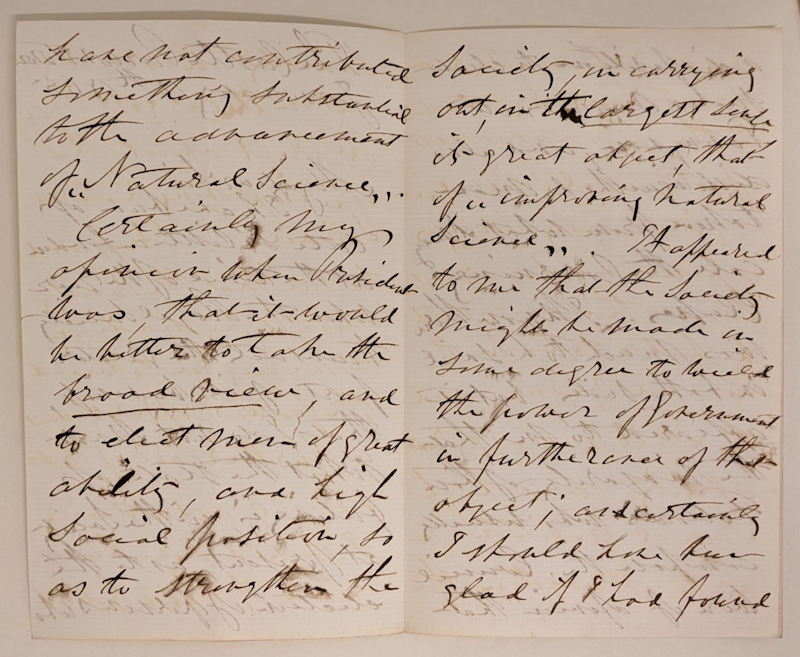 have not contributed
something substantial
to the advancement
of „Natural Science„.
Certainly my
opinion when President
was, that it would
be better to take the
broad view, and
to elect men of great
ability, and high
social position, so
as to strengthen the
Society, in carrying
out, in the largest sense
its great object, that
of „improving natural
Science„. It appeared
to me that the Society
might be made in
some degree to wield
the power of Government
in furtherance of that
object; and certainly
I should have been
glad if I had found